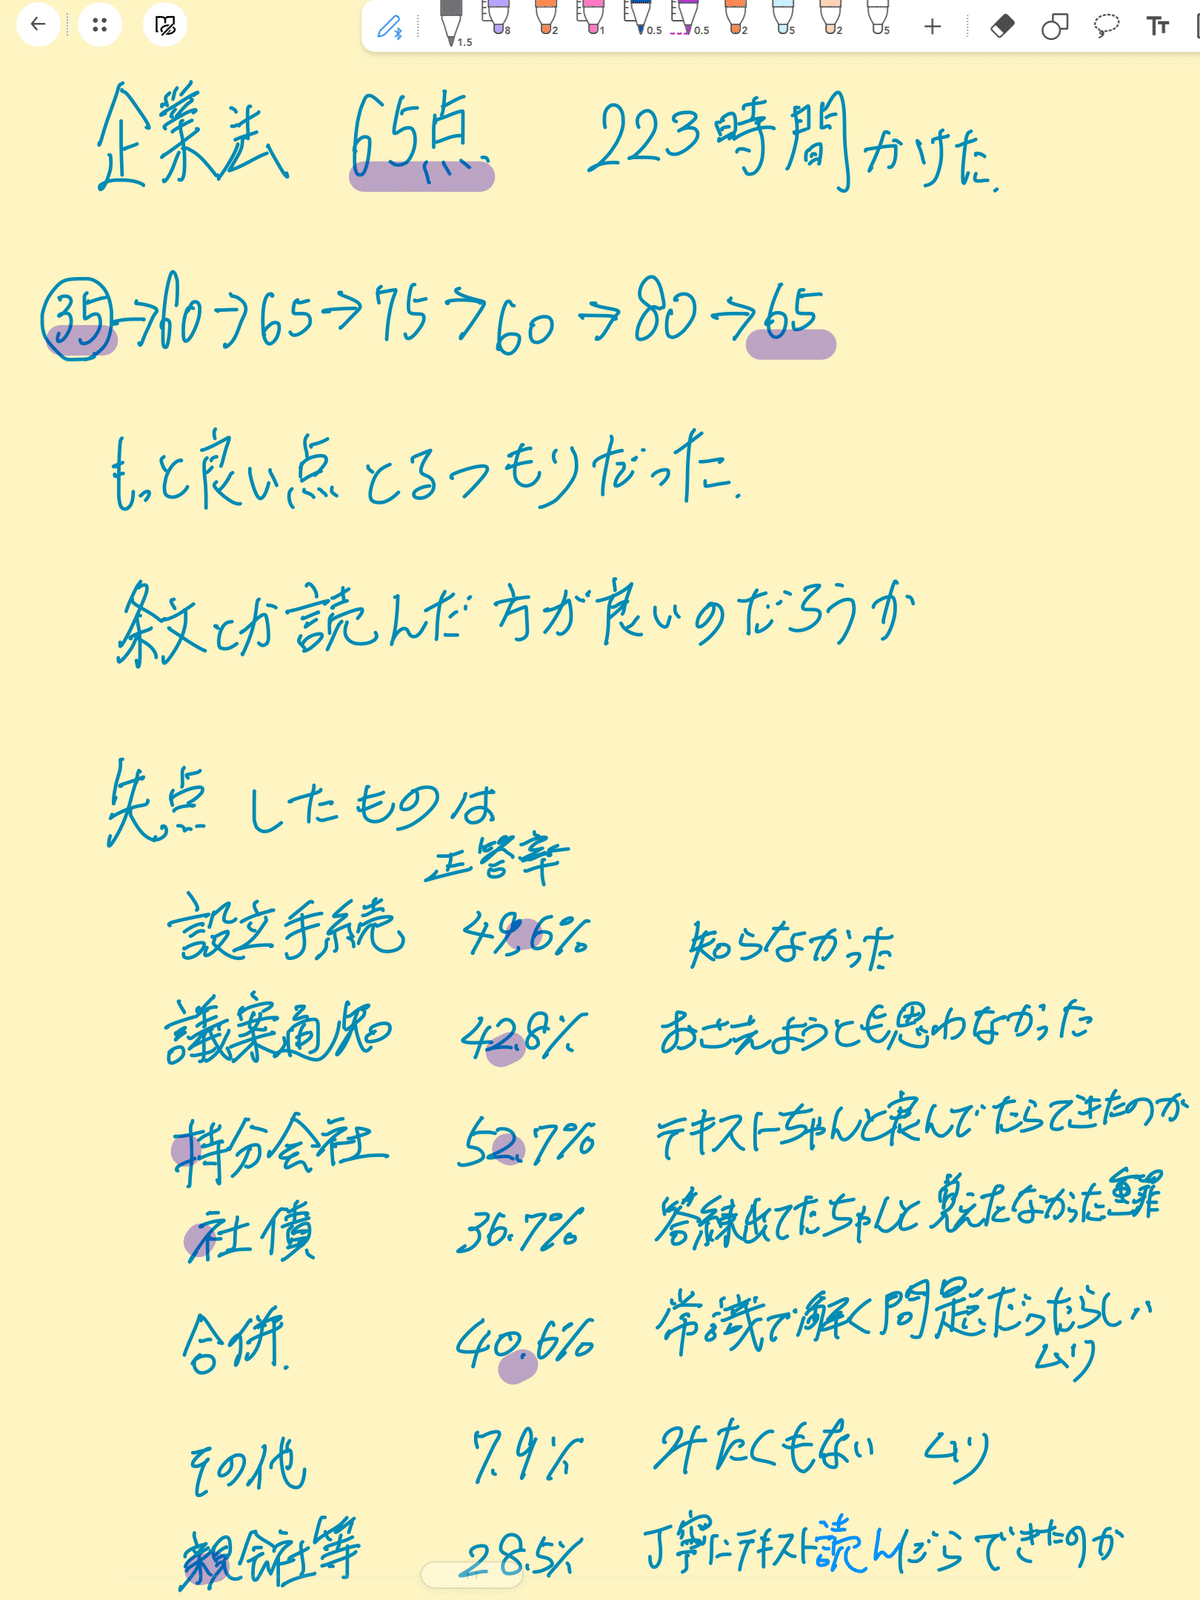 1.5 8 2 1 0.5 0.5 2 5 2 5 + TT
企業法 65点 223時間かけた.
35→60→65→75→60→80→65
もっと良い点とるつもりだった.
条文とか読んだ方が良いのだろうか
失点したものは
正答率
設立手続 49.6% 知らなかった
議案通知 42.8% おさえようとも思わなかった
持分会社 52.7% テキストちゃんと読んでたらできたのか
社債 36.7% 答練出てたちゃんと覚えたなかった重罪
合併. 40.6% 常識で解く問題だったらしい
ムリ
その他 7.9% みたくもない ムリ
親会社等 28.5% 丁寧にテキスト読んだらできたのか